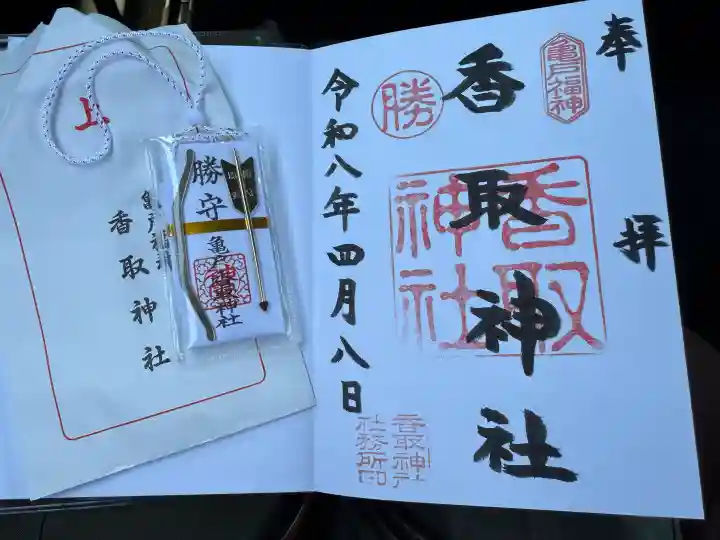 奉拝
亀戸福神
香取神社
勝
香取神社
令和八年四月八日
香取神社
社務所印
勝守
亀戸
香取神社
上
香取神社